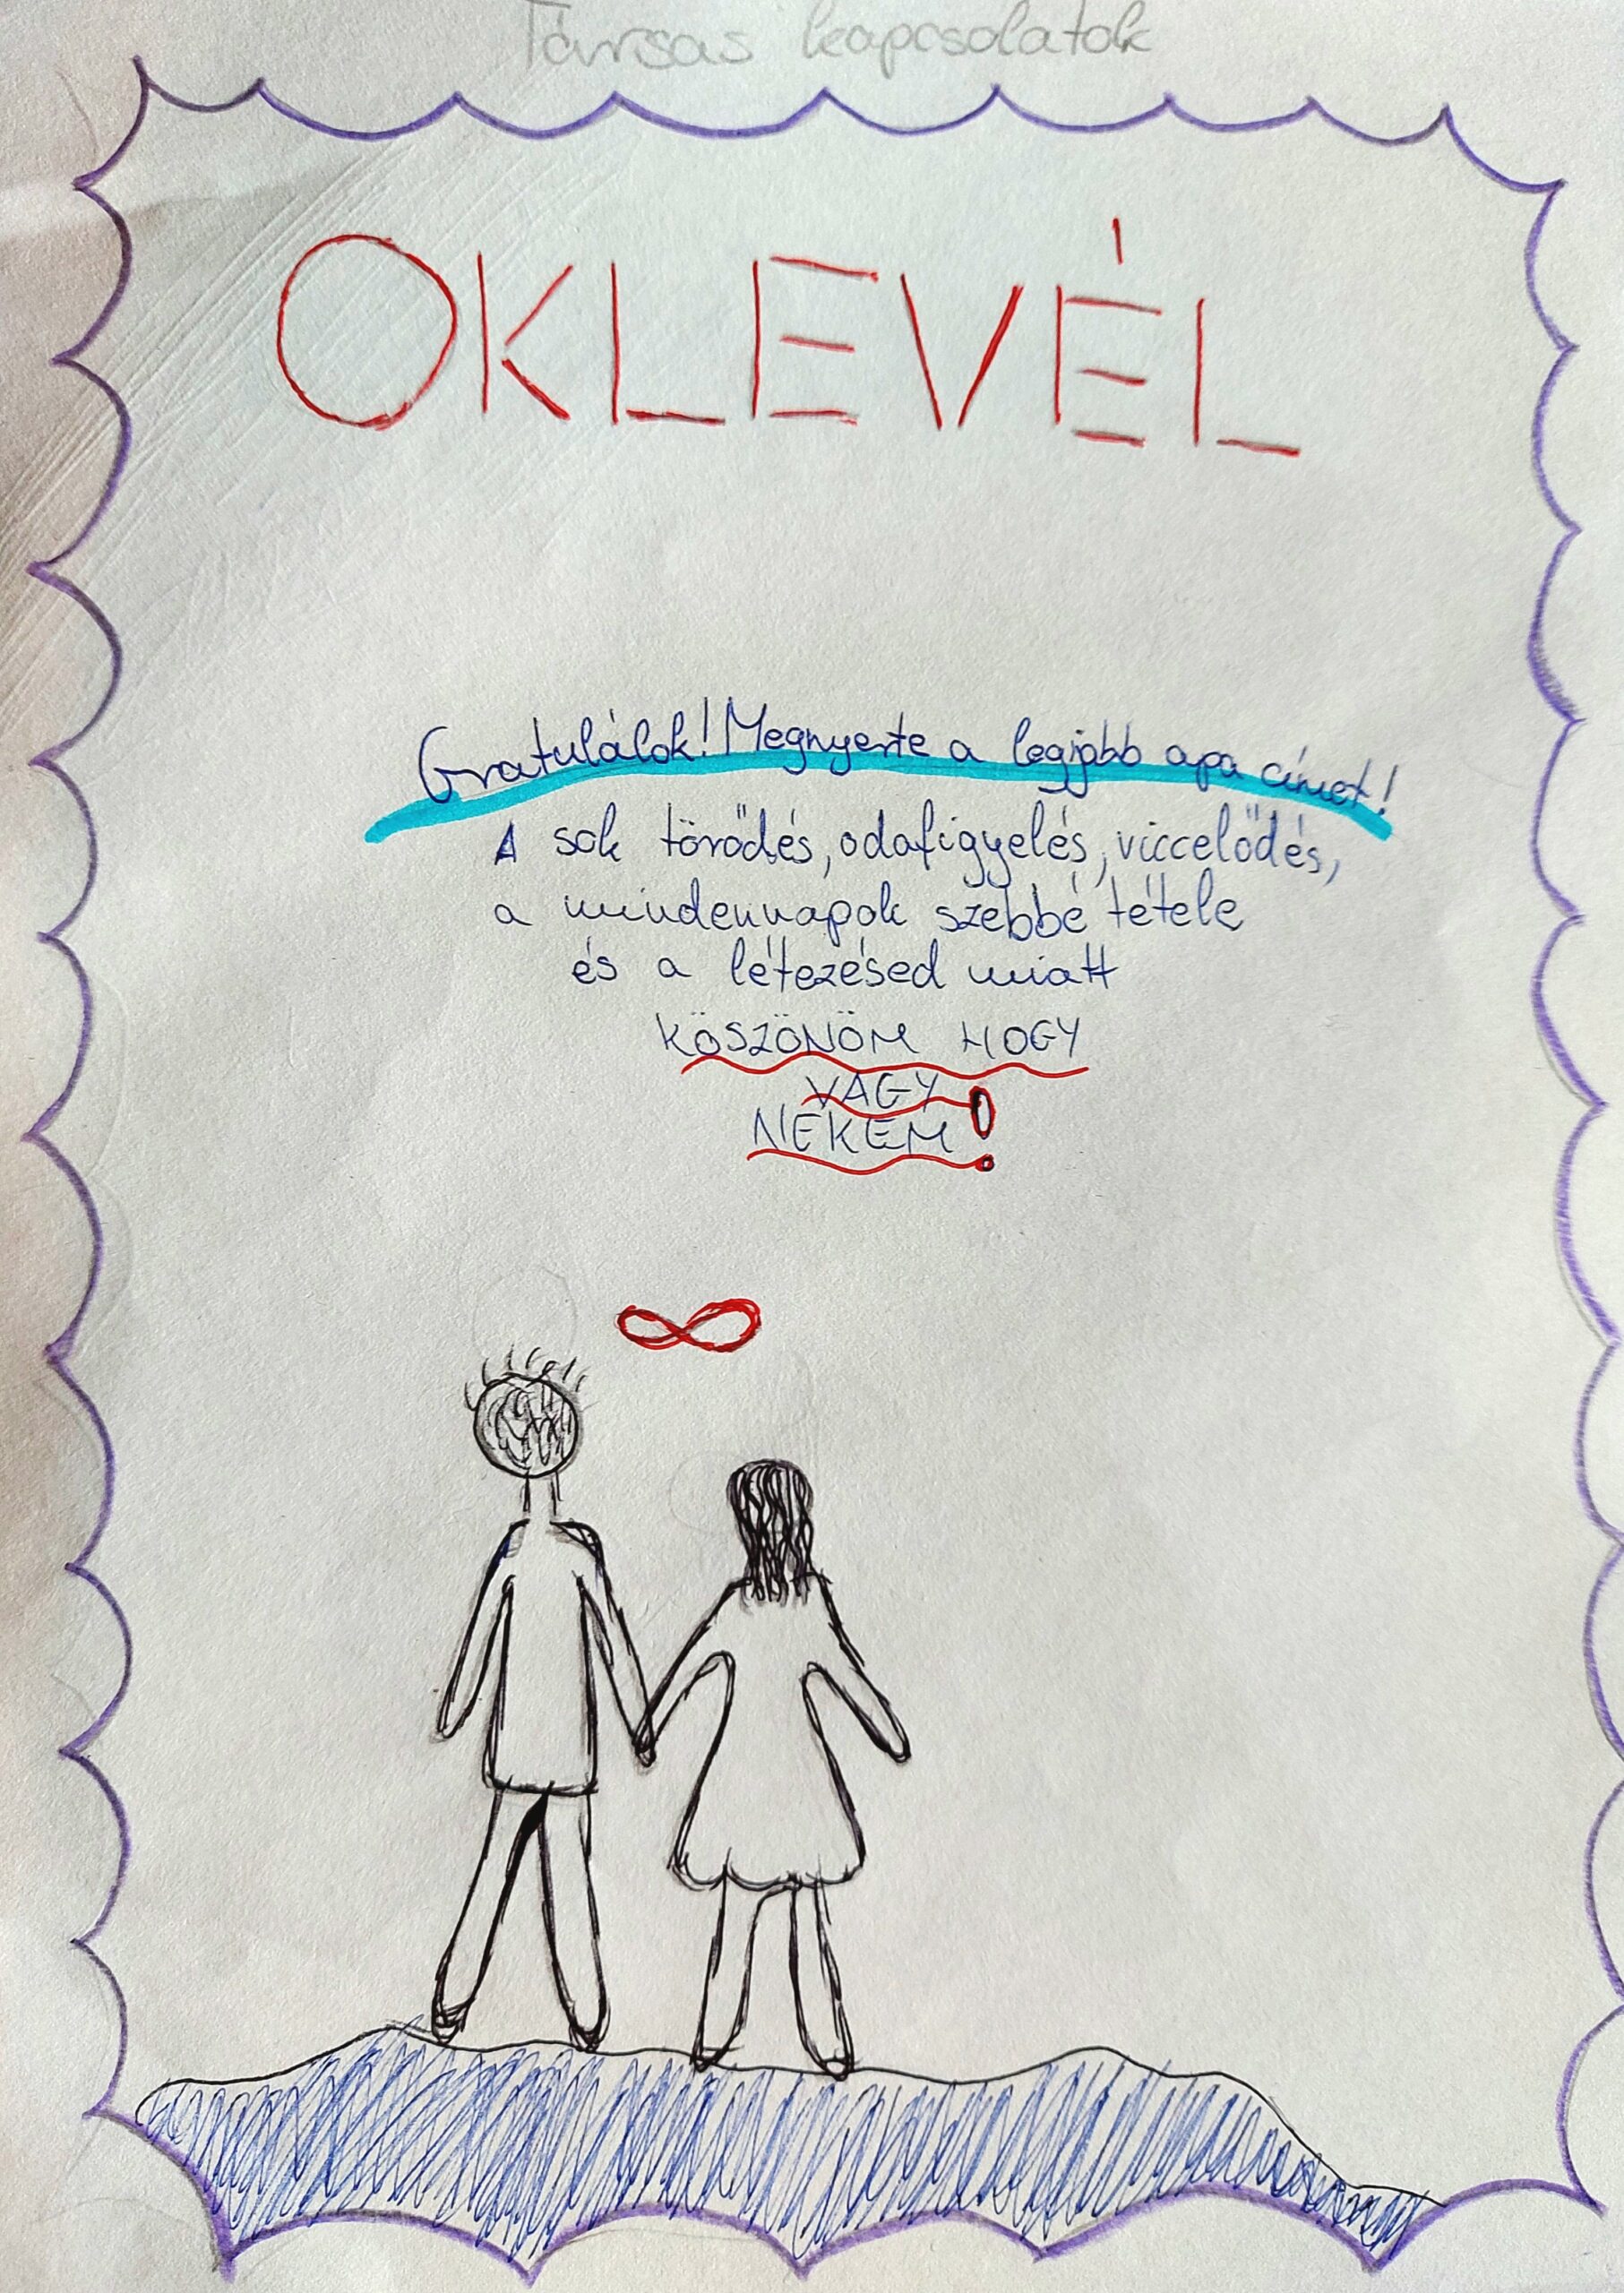 Társas kapcsolatok
OKLEVÉL
Gratulálok! Megnyerte a legjobb apa címet!
A sok törődés, odafigyelés, viccelődés,
a mindennapok szebbé tétele
és a létezésed miatt
KÖSZÖNÖM HOGY
VAGY
NEKEM!